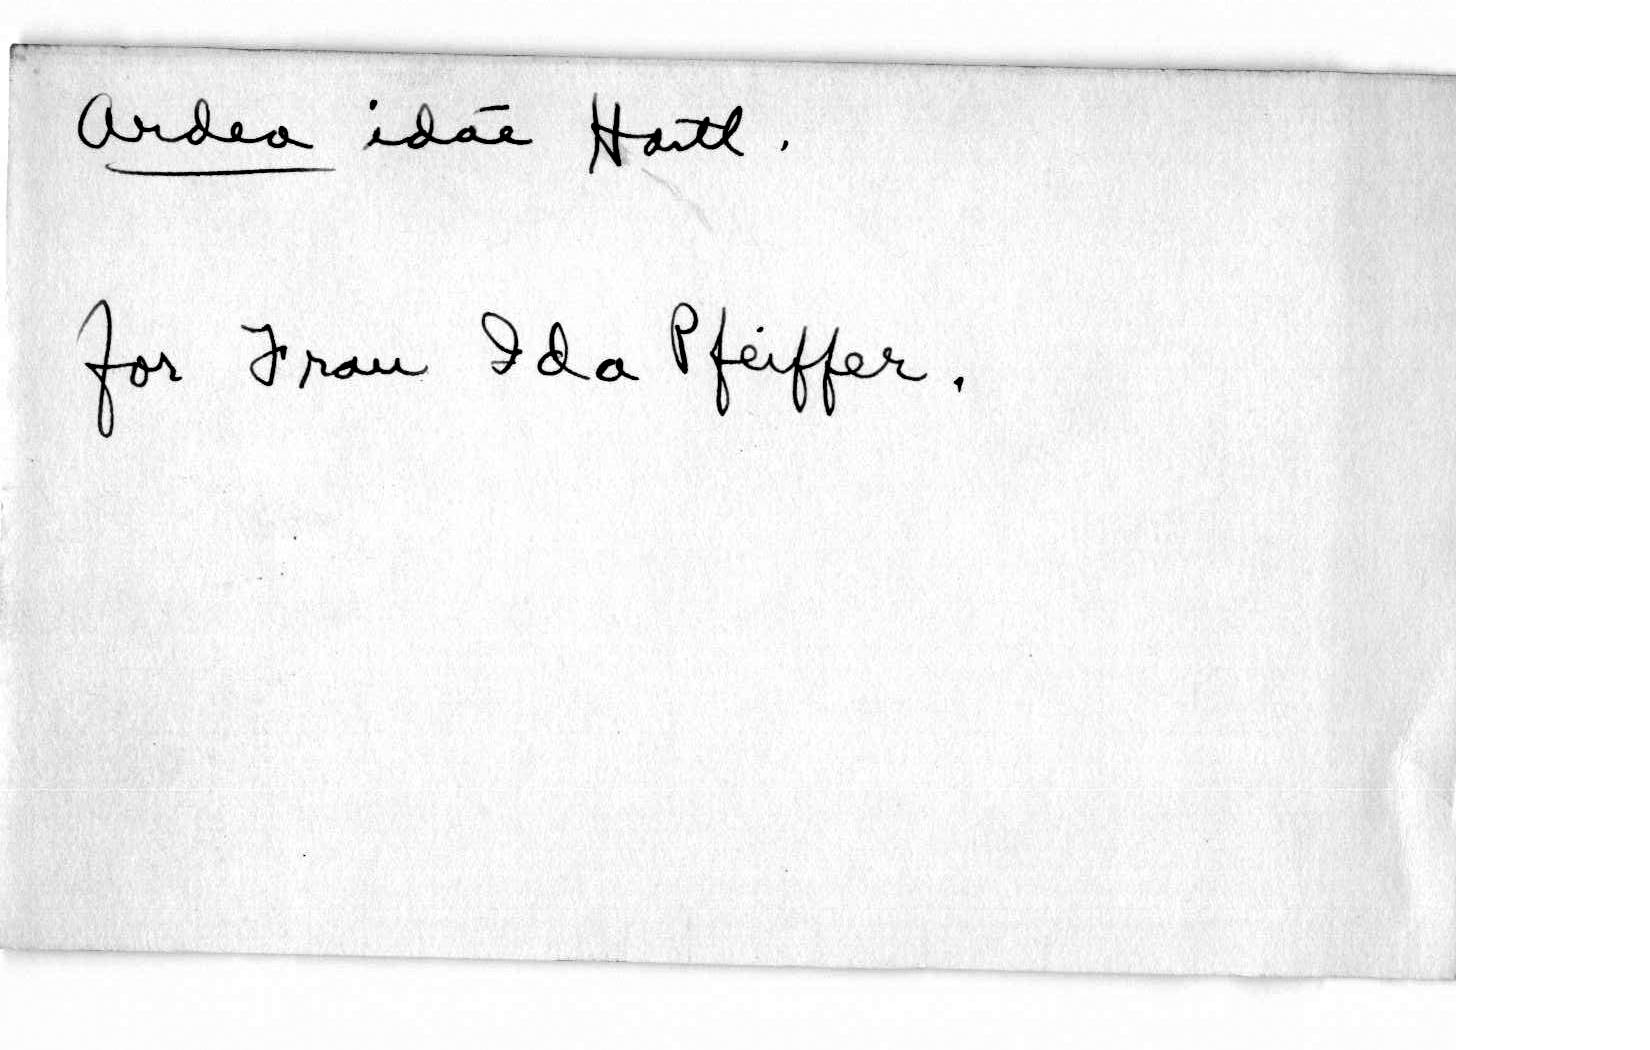 Ardea idāe Hartl.
for Frau Ida Pfeiffer.